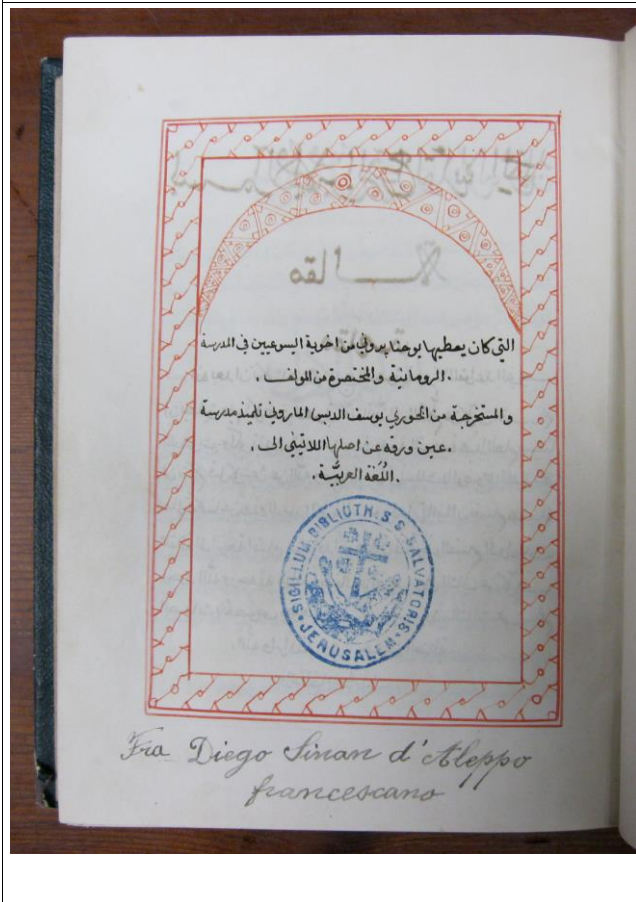 التي كان يعطيها يوحنا بروني من اخوية اليسوعيين في المدرسة
.الرومانية والمختصرة من المولف.
والمستخرجة من الخوري يوسف الدبس الماروني تلميذ مدرسة
.عين ورقه عن اصلها اللاتيني الى.
.اللُغة العربيَّة.
SIGILLUM BIBLIOTH. S. S. SALVATORIS
JERUSALEM
Fra Diego Sinan d'Aleppo
francescano